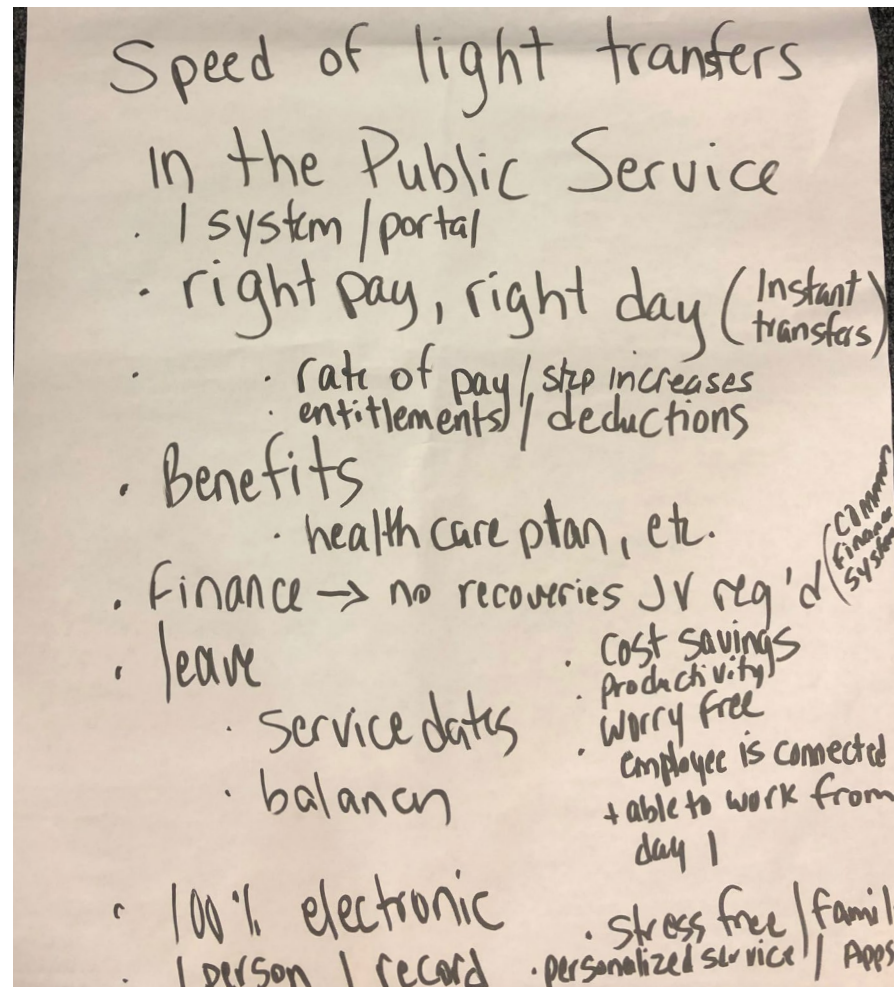 Speed of light transfers
in the Public Service
· 1 system / portal
· right pay, right day (Instant transfers)
· · rate of pay / step increases
· entitlements / deductions
· Benefits
· health care plan, etc.
· Finance → no recoveries JV req'd (common finance system
· leave
· service dates
· balances
· cost savings
· productivity
· worry free
employee is connected
+ able to work from
day 1
· 100% electronic
· 1 person 1 record
· stress free / famil
· personalized service / Apps